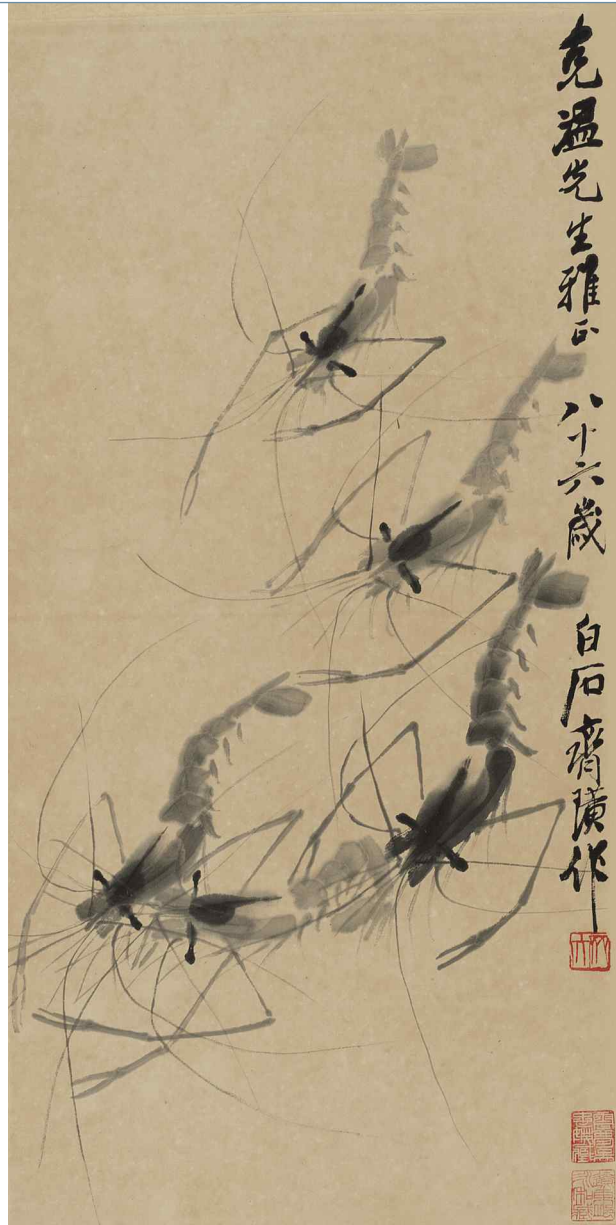 克温先生雅正 八十六歲 白石齊璜作